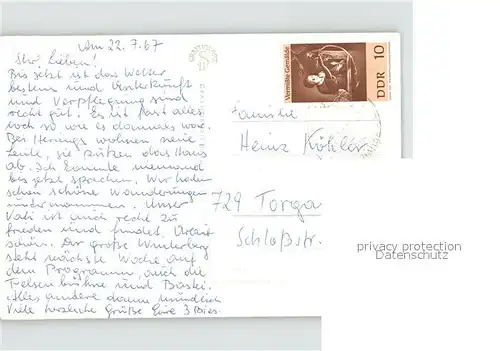 Am 22.7.67
Ihr Lieben!
Bis jetzt ist das Wetter
bestens und Unterkunft
und Verpflegung sind
recht gut. Es ist fast alles
noch so wie es damals war.
Bei Herings wohnen neue
Leute, sie putzen das Haus
ab. Ich konnte niemand
bis jetzt sprechen. Wir haben
schon schöne Wanderungen
unternommen. Unser
Vati ist auch recht zu
frieden und findet Urlaub
schön. Der große Winterberg
steht nächste Woche auf
dem Programm, auch die
Felsenbühne und Bastei.
Alles andere dann mündlich
Viele herzliche Grüße Eure 3
Vermißte Gemälde
DDR 10
Familie
Heinz Köhler
729 Torga
Schloßstr.
privacy protection
Datenschutz